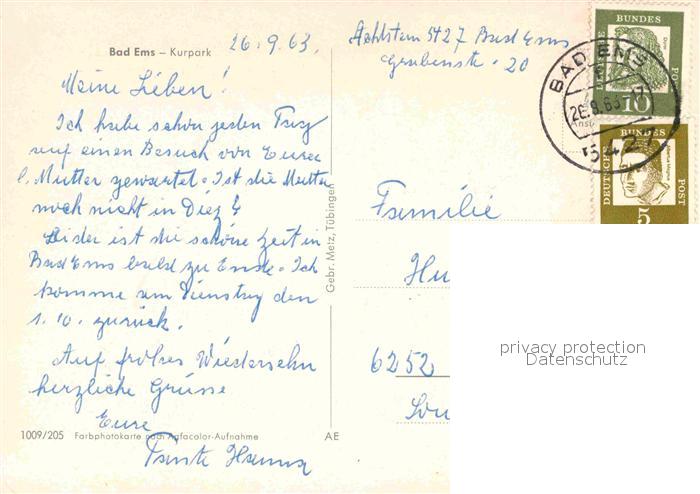 Bad Ems – Kurpark
26.9.63.
5427 Bad Ems
Grabenstr. 20
Meine Lieben!
Ich habe schon jeden Tag
auf einen Besuch von Eurer
l. Mutter gewartet. Ist die Mutter
noch nicht in Diez?
Leider ist die schöne Zeit in
Bad Ems bald zu Ende. Ich
komme am Dienstag den
1.10. zurück.
Auf frohes Wiedersehn
herzliche Grüsse
Eure
Tante Hanna
1009/205 Farbphotokarte nach Agfacolor-Aufnahme
AE
Gebr. Metz, Tübingen
Familie
Hu
6252
DEUTSCHE BUNDESPOST
10
BAD EMS
5427
DEUTSCHE BUNDESPOST
5
privacy protection
Datenschutz